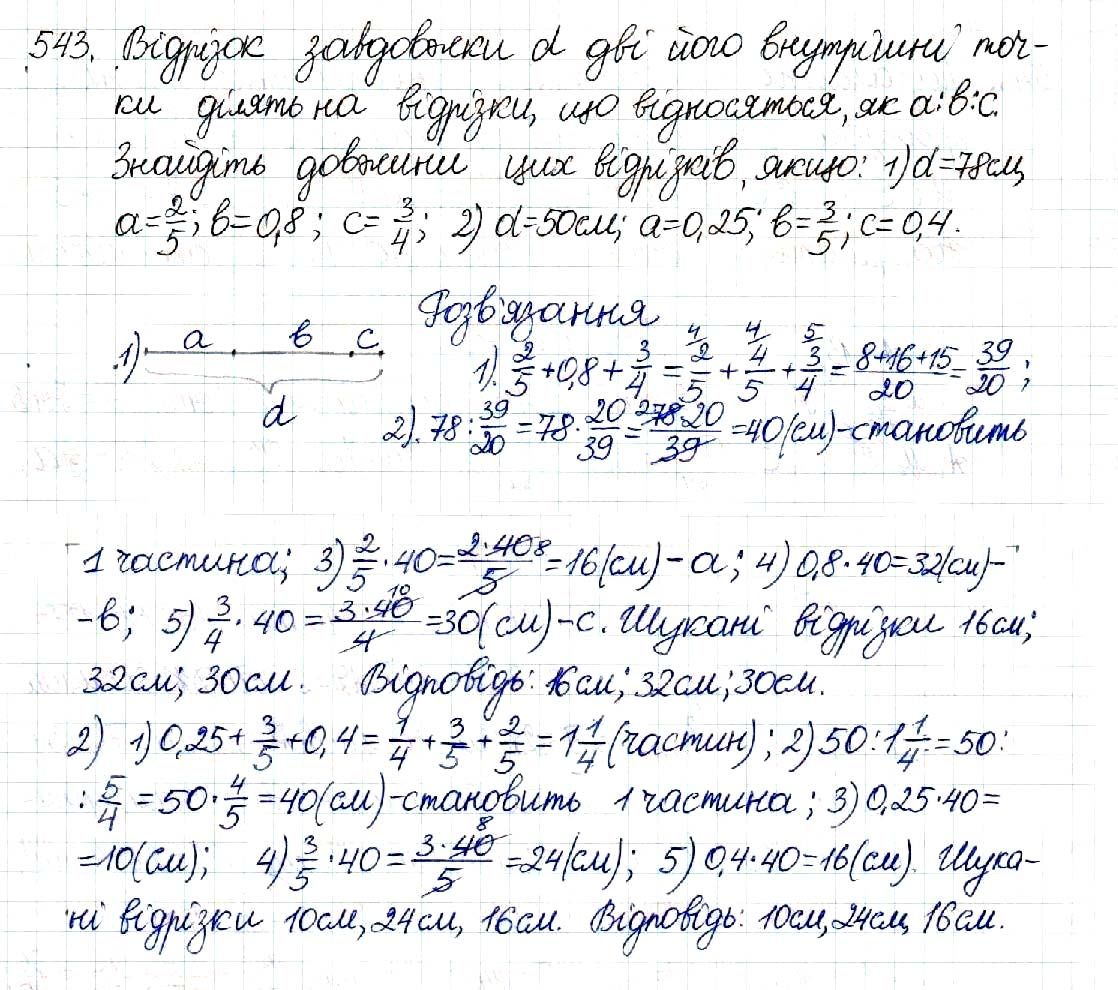 543. Відрізок завдовжки d дві його внутрішні точ-
ки ділять на відрізки, що відносяться, як a:в:c.
Знайдіть довжини цих відрізків, якщо: 1) d=78см,
a=2/5; в=0,8; c=3/4; 2) d=50см; a=0,25; в=3/5; c=0,4.
Розв'язання
1) a в c
d
1). 2/5+0,8+3/4=2/5+4/5+3/4=8+16+15/20=39/20;
2). 78:39/20=78·20/39=78·20/39=40(см)-становить
1 частина; 3) 2/5·40=2·40/5=16(см)-a; 4) 0,8·40=32(см)-
-в; 5) 3/4·40=3·40/4=30(см)-c. Шукані відрізки 16см;
32см; 30см. Відповідь: 16см; 32см; 30см.
2) 1) 0,25+3/5+0,4=1/4+3/5+2/5=1 1/4(частин); 2) 50:1 1/4=50:
:5/4=50·4/5=40(см)-становить 1 частина; 3) 0,25·40=
=10(см); 4) 3/5·40=3·40/5=24(см); 5) 0,4·40=16(см). Шука-
ні відрізки 10см, 24см, 16см. Відповідь: 10см, 24см, 16см.